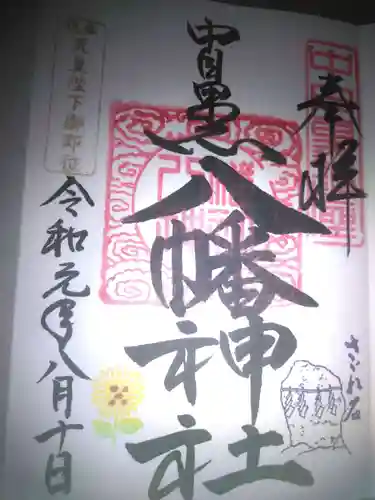 奉拝
さざれ石
中目黒
八幡神社
奉祝
天皇陛下御即位
令和元年八月十日